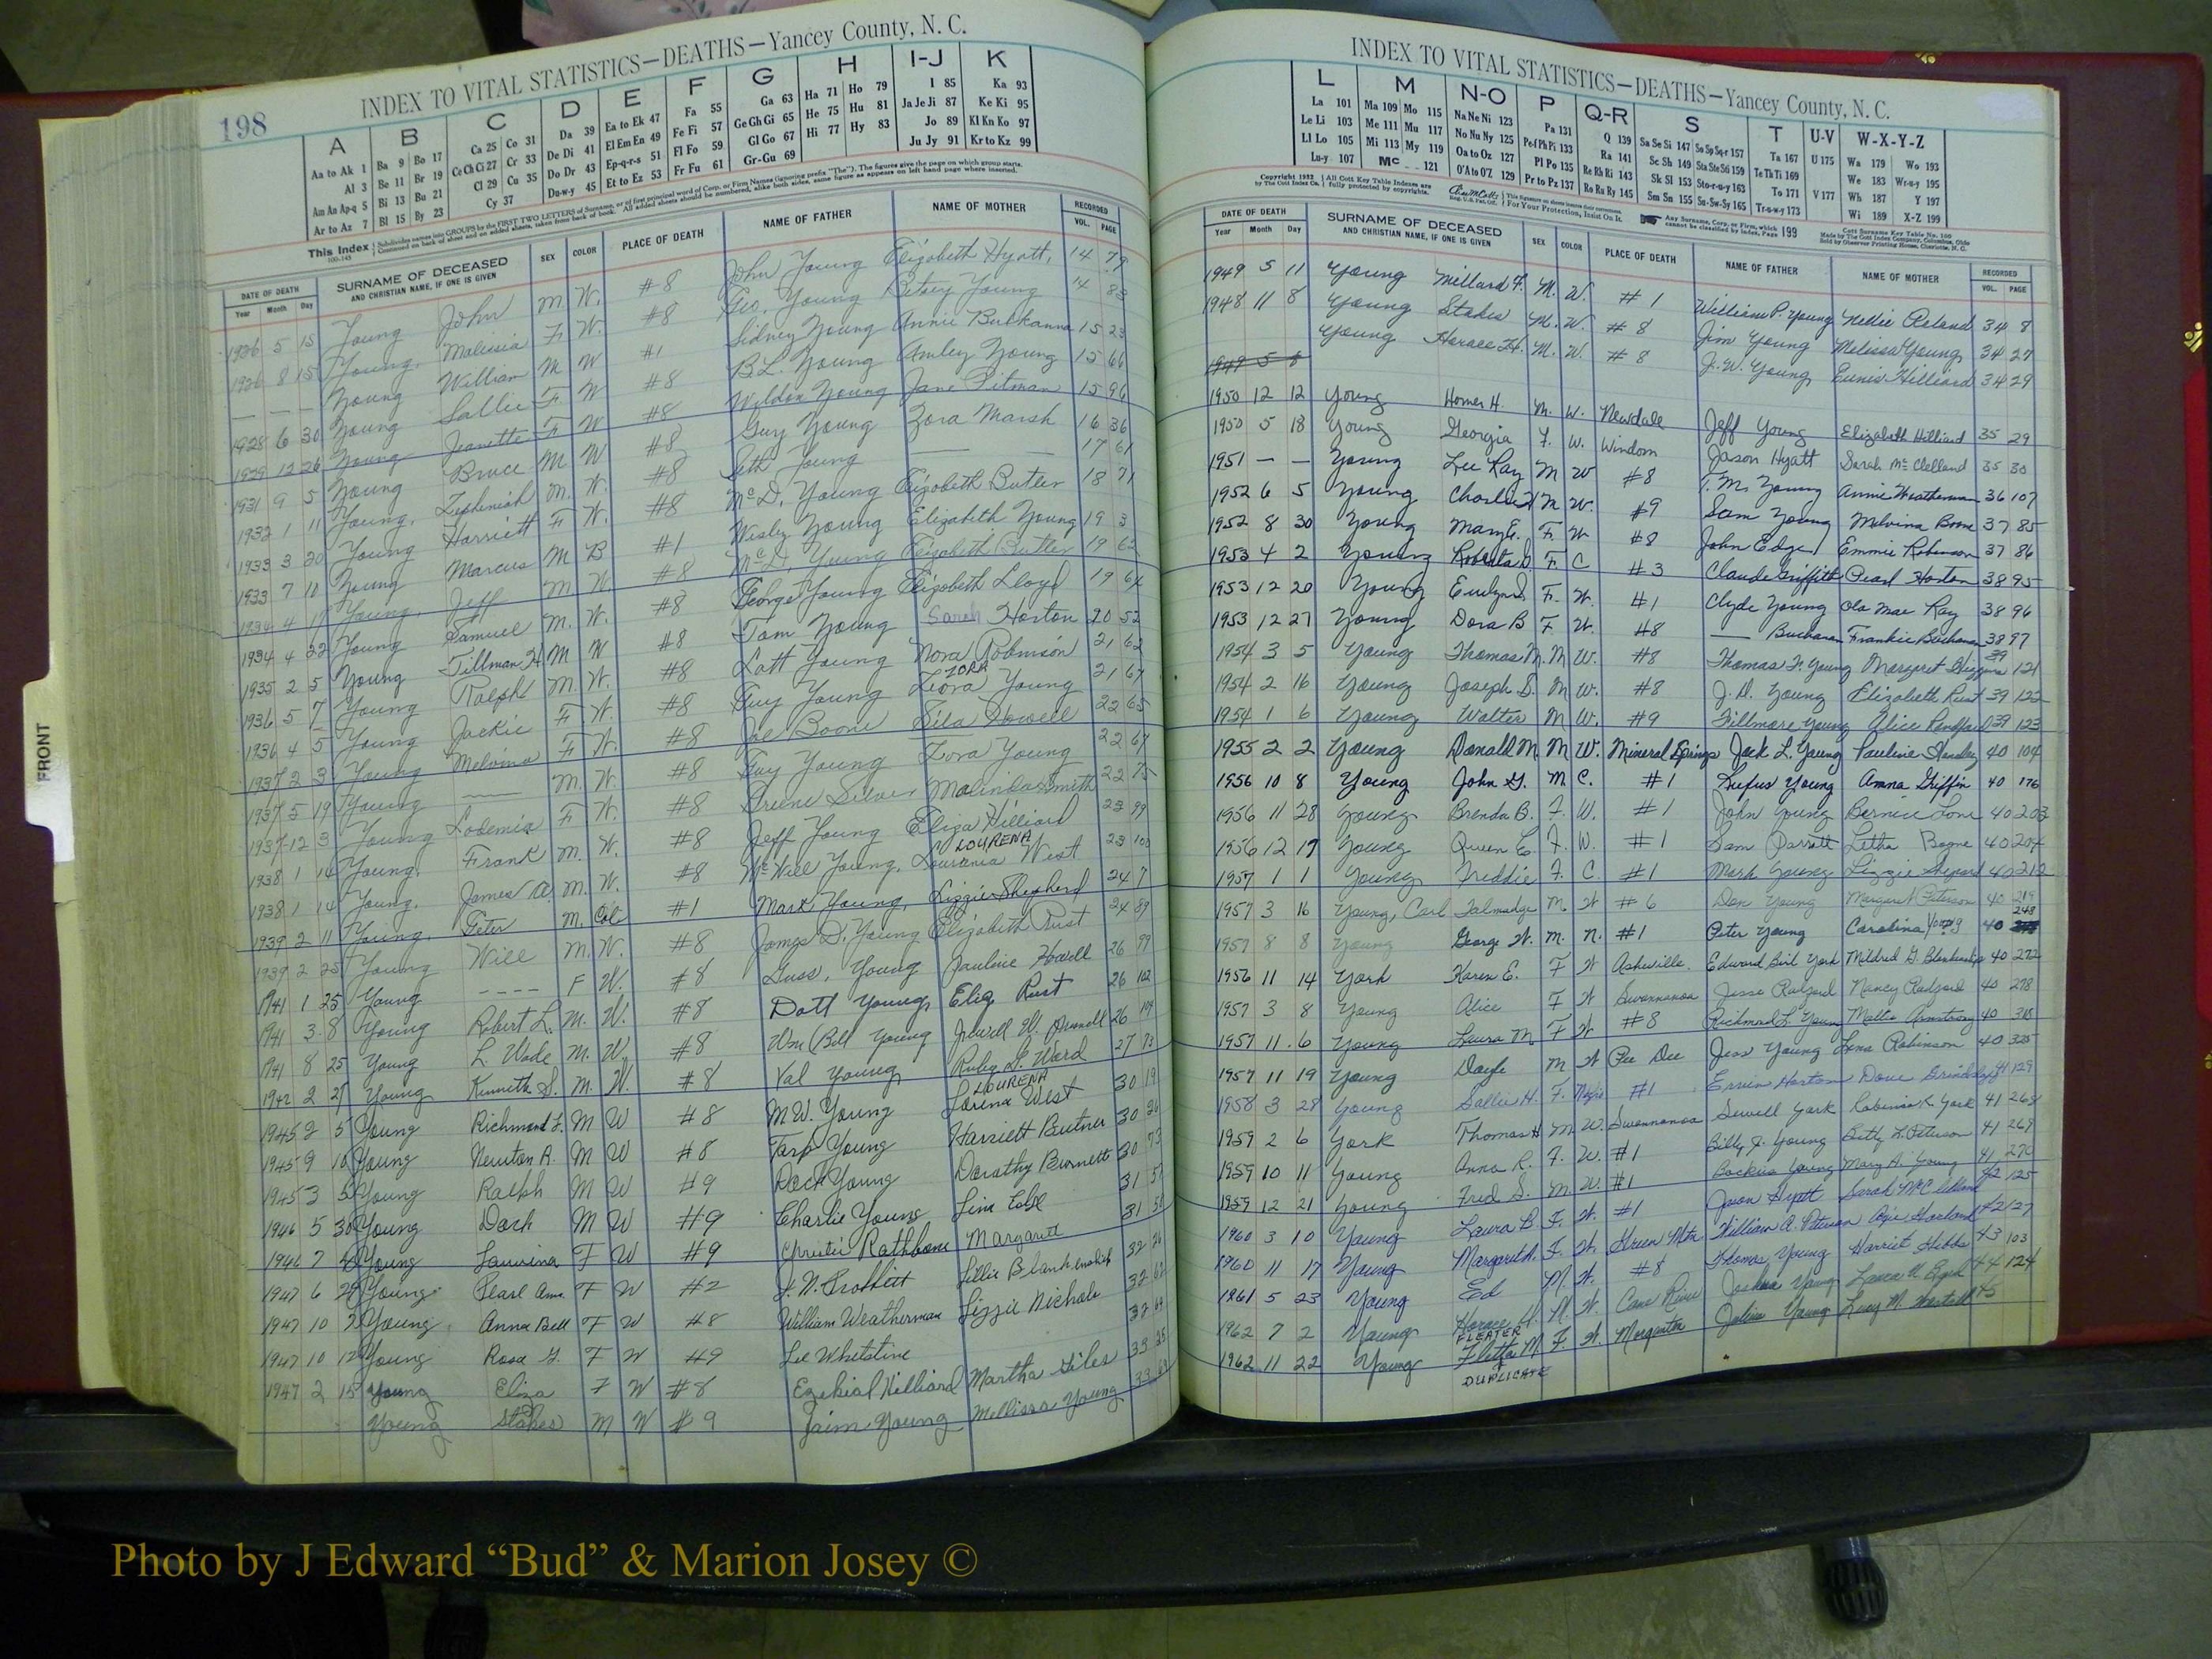 198
INDEX TO VITAL STATISTICS—DEATHS—Yancey County, N. C.
A B C D E F G H I-J K
Aa to Ak 1 Ba 9 Bo 17 Ca 25 Co 31 Da 39 Ea to Ek 47 Fa 55 Ga 63 Ha 71 Ho 79 I 85 Ka 93
Al 3 Be 11 Br 19 Ce Ch Ci 27 Cr 33 De Di 41 El Em En 49 Fe Fi 57 Ge Gh Gi 65 He 75 Hu 81 Ja Je Ji 87 Ke Ki 95
Am An Ap-q 5 Bi 13 Bu 21 Cl 29 Cu 35 Do Dr 43 Ep-q-r-s 51 Fl Fo 59 Gl Go 67 Hi 77 Hy 83 Jo 89 Kl Kn Ko 97
Ar to Az 7 Bl 15 By 23 Cy 37 Du-w-y 45 Et to Ez 53 Fr Fu 61 Gr-Gu 69 Ju Jy 91 Kr to Kz 99
This Index
DATE OF DEATH SURNAME OF DECEASED AND CHRISTIAN NAME, IF ONE IS GIVEN SEX COLOR PLACE OF DEATH NAME OF FATHER NAME OF MOTHER RECORDED
Year Month Day VOL. PAGE
1926 5 15 Young John M. W. #8 John Young Elizabeth Hyatt, 14 79
1926 8 15 Young. Malissia F. W. #8 Geo. Young Betsey Young 14 83
— — — Young William M W #1 Sidney Young Annie Buchanan 15 23
1928 6 30 Young Sallie F. W #8 B.L. Young Amley Young 15 66
1929 12 26 Young Jeanette F W #8 Weldon Young Jane Pitman 15 96
1931 9 5 Young Bruce M W #8 Guy Young Zora Marsh 16 36
1932 1 11 Young. Zepheniah M. W. #8 Seth Young — — 17 61
1933 3 20 Young Harriett F. W. #8 McD. Young Elizabeth Butler 18 71
1933 7 10 Young Marcus M B #1 Wesley Young Elizabeth Young 19 3
1934 4 Young. Jeff M W. #8 McD. Young Elizabeth Butler 19 62
1934 4 22 Young Samuel M. W. #8 George Young Elizabeth Lloyd 19 64
1935 2 5 Young Tillman H. M W #8 Tom Young Sarah Horton 20 52
1936 5 7 Young Ralph M. W. #8 Lott Young Nora Robinson 21 62
1936 4 5 Young Jackie F. W. #8 Guy Young ZORA Young 21 67
1937 2 3 Young Melvina F W. #8 Joe Boone Sila Howell 22 65
1937 5 19 Young — M. W. #8 Guy Young Zora Young 22 67
1937 12 3 Young Lodemia F W. #8 Greene Silver Malinda Smith 22 75
1938 1 14 Young. Frank M. W. #8 Jeff Young Eliza Hilliard 23 99
1938 1 14 Young. James A. M. W. #8 McWill Young. LOURENA West 23 100
1939 2 11 Young. Peter M. Col #1 Mark Young, Lizzie Shepherd 24 7
1939 2 25 Young Will M. W. #8 James D. Young Elizabeth Rust 24 89
1941 1 25 Young - - - - F W. #8 Guss. Young Pauline Howell 26 99
1941 3 8 Young Robert L. M. W. #8 Dott Young Eliz Rust 26 102
1941 8 25 Young L. Wade M. W. #8 Wm (Bill Young Jewell W. 26
1942 2 21 Young Kenneth S. M. W. #8 Val Young Ruby G. Ward 27 73
1945 2 5 Young Richmond L. M W #8 M.W. Young LOURENA Lorena West 30 19
1945 9 10 Young Newton R. M W #8 Tarp Young Harriett Butner 30 26
1945 3 5 Young Ralph M W #9 Dock Young Dorothy Burnett 30 73
1946 5 30 Young Dock M W #9 Charlie Young 31 5
1946 7 Young Laurina F W #9 Rathbone Margaret 31 5
1947 6 Young Pearl Ann F W #2 J. N. Proffitt Lillie Blankenship 32
1947 10 Young Anna Bell F W #8 William Weatherman Lizzie Nichols 32 6
1947 10 12 Young Rosa G. F W #9 Lee Whetstine 32
1947 2 15 Young Eliza F W #8 Ezekial Hilliard Martha Giles 33 25
Young Stakes M W #9 Jaim Young Mellissa Young 33
INDEX TO VITAL STATISTICS—DEATHS—Yancey County, N. C.
L M N-O P Q-R S T U-V W-X-Y-Z
La 101 Ma 109 Mo 115 Na Ne Ni 123 Pa 131 Q 139 Sa Se Si 147 So Sp Sq-r 157 Ta 167 U 175 Wa 179 Wo 193
Le Li 103 Me 111 Mu 117 No Nu Ny 125 Pe-f Ph Pi 133 Ra 141 Sc Sh 149 Sta Ste Sti 159 Te Th Ti 169 We 183 Wr-u-y 195
Ll Lo 105 Mi 113 My 119 Oa to Oz 127 Pl Po 135 Re Rh Ri 143 Sk Sl 153 Sto-r-u-y 163 To 171 V 177 Wh 187 Y 197
Lu-y 107 Mc 121 O'A to O'Z 129 Pr to Pz 137 Ro Ru Ry 145 Sm Sn 155 Su-Sw-Sy 165 Tr-u-w-y 173 Wi 189 X-Z 199
DATE OF DEATH SURNAME OF DECEASED AND CHRISTIAN NAME, IF ONE IS GIVEN SEX COLOR PLACE OF DEATH NAME OF FATHER NAME OF MOTHER RECORDED
Year Month Day VOL. PAGE
1949 5 11 Young Millard F. M. W. #1 William P. Young Nellie Roland 34 8
1948 11 8 Young Stakes M. W. #8 Jim Young Melissa Young 34 27
Young Horace H. M. W. #8 J. W. Young Eunis Hilliard 34 29
1950 12 12 Young Homer H. M. W. Newdale Jeff Young Elizabeth Hilliard 35 29
1950 5 18 Young Georgia F. W. Windom Jason Hyatt Sarah McClelland 35 30
1951 — — Young Lee Ray M W #8 T. M. Young Annie Weatherman 36 107
1952 6 5 Young Charlie H M W. #9 Sam Young Melvina Boone 37 85
1952 8 30 Young Mary E. F. W #8 John Edge Emmie Robinson 37 86
1953 4 2 Young Roberta D F C #3 Claude Griffith Pearl Horton 38 95
1953 12 20 Young F. W. #1 Clyde Young Ola Mae Ray 38 96
1953 12 27 Young Dora B F. W. #8 — Buchanan Frankie Buchanan 38 97
1954 3 5 Young Thomas M. M W. #8 Thomas F. Young Margaret Higgins 39 121
1954 2 16 Young Joseph S. M W. #8 J. D. Young Elizabeth Rust 39 122
1954 1 6 Young Walter M W. #9 Fillmore Young Alice 39 123
1955 2 2 Young Donald M. M W. Mineral Springs Jack L. Young Pauline Hensley 40 104
1956 10 8 Young John G. M C. #1 Rufus Young Anna Griffin 40 176
1956 11 28 Young Brenda B. F. W. #1 John Young Bernice Lone 40 203
1956 12 17 Young Queen E. F. W. #1 Sam Parrott Letha Boone 40 204
1957 1 1 Young Freddie F. C. #1 Mark Young Lizzie Shepard 40 212
1957 3 16 Young, Carl Talmadge M W #6 Don Young Margaret Peterson 40 219
1957 8 8 Young George W. M. N. #1 Peter Young Carolina Young 40 248
1956 11 14 York Karen E. F W Asheville. Edward Birl York Mildred G. Blankenship 40 272
1957 3 8 Young Alice F W Swannanoa Jesse Radford Nancy Radford 40 278
1957 11 6 Young Laura M F W #8 Richmond L. Young Mattie Armstrong 40 315
1957 11 19 Young Doyle M W Pee Dee Jess Young Lena Robinson 40 325
1958 3 28 Young Sallie H. F. Negro #1 Ervin Horton Dove 41 129
1959 2 6 York Thomas H M W. Swannanoa Sewell York Robinson York 41 268
1959 10 11 Young Anna R. F. W. #1 Billy J. Young Betty L. Peterson 41 269
1959 12 21 Young Fred S. M W. #1 Backus Young Mary A. Young 41 270
1960 3 10 Young Laura B. F. W. #1 Jason Hyatt Sarah McClelland 42 125
1960 11 17 Young Margaret H. F. W. Green Mtn William A. Peterson 42 127
1961 5 23 Young Ed M. W. #8 Thomas Young Harriet Hobbs 43 103
1962 7 2 Young Horace H. M. W. Cane River Joshua Young Laura 44 124
1962 11 22 Young FLEATER Fletta M F. W. Morganton Julius Young Lucy M. 45
DUPLICATE
FRONT
Photo by J Edward “Bud” & Marion Josey ©